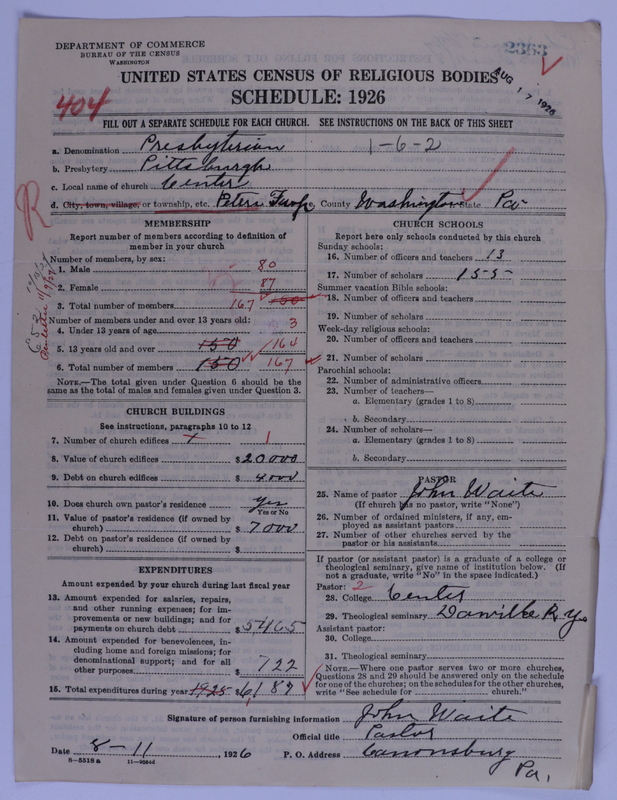 DEPARTMENT OF COMMERCE
BUREAU OF THE CENSUS
WASHINGTON
UNITED STATES CENSUS OF RELIGIOUS BODIES
AUG 17 1926
SCHEDULE: 1926
404
FILL OUT A SEPARATE SCHEDULE FOR EACH CHURCH. SEE INSTRUCTIONS ON THE BACK OF THIS SHEET
a. Denomination Presbyterian 1-6-2
b. Presbytery Pittsburgh
c. Local name of church Center
d. City, town, village, or township, etc. Peters Twp, County Washington State Pa
R
MEMBERSHIP
Report number of members according to definition of
member in your church
Number of members, by sex:
1. Male 80
2. Female 87
3. Total number of members 167 150
Number of members under and over 13 years old:
4. Under 13 years of age 3
5. 13 years old and over 150 164
6. Total number of members 150 167
NOTE.—The total given under Question 6 should be the
same as the total of males and females given under Question 3.
CHURCH BUILDINGS
See instructions, paragraphs 10 to 12
7. Number of church edifices 1
8. Value of church edifices $20000
9. Debt on church edifices $4000
10. Does church own pastor's residence Yes
Yes or No
11. Value of pastor's residence (if owned by
church) $7000
12. Debt on pastor's residence (if owned by
church) $
EXPENDITURES
Amount expended by your church during last fiscal year
13. Amount expended for salaries, repairs,
and other running expenses; for im-
provements or new buildings; and for
payments on church debt $5465
14. Amount expended for benevolences, in-
cluding home and foreign missions; for
denominational support; and for all
other purposes $722
15. Total expenditures during year 1925 $6187
CHURCH SCHOOLS
Report here only schools conducted by this church
Sunday schools:
16. Number of officers and teachers 13
17. Number of scholars 155
Summer vacation Bible schools:
18. Number of officers and teachers
19. Number of scholars
Week-day religious schools:
20. Number of officers and teachers
21. Number of scholars
Parochial schools:
22. Number of administrative officers
23. Number of teachers—
a. Elementary (grades 1 to 8)
b. Secondary
24. Number of scholars—
a. Elementary (grades 1 to 8)
b. Secondary
PASTOR
25. Name of pastor John Waite
(If church has no pastor, write "None")
26. Number of ordained ministers, if any, em-
ployed as assistant pastors
27. Number of other churches served by the
pastor or his assistants
If pastor (or assistant pastor) is a graduate of a college or
theological seminary, give name of institution below. (If
not a graduate, write "No" in the space indicated.)
Pastor: 2
28. College Center
29. Theological seminary Danville Ky
Assistant pastor:
30. College
31. Theological seminary
NOTE.—Where one pastor serves two or more churches,
Questions 28 and 29 should be answered only on the schedule
for one of the churches; on the schedules for the other churches,
write "See schedule for church."
Signature of person furnishing information John Waite
Official title Pastor
Date 8-11, 1926 P. O. Address Canonsburg
Pa.
8-5518a